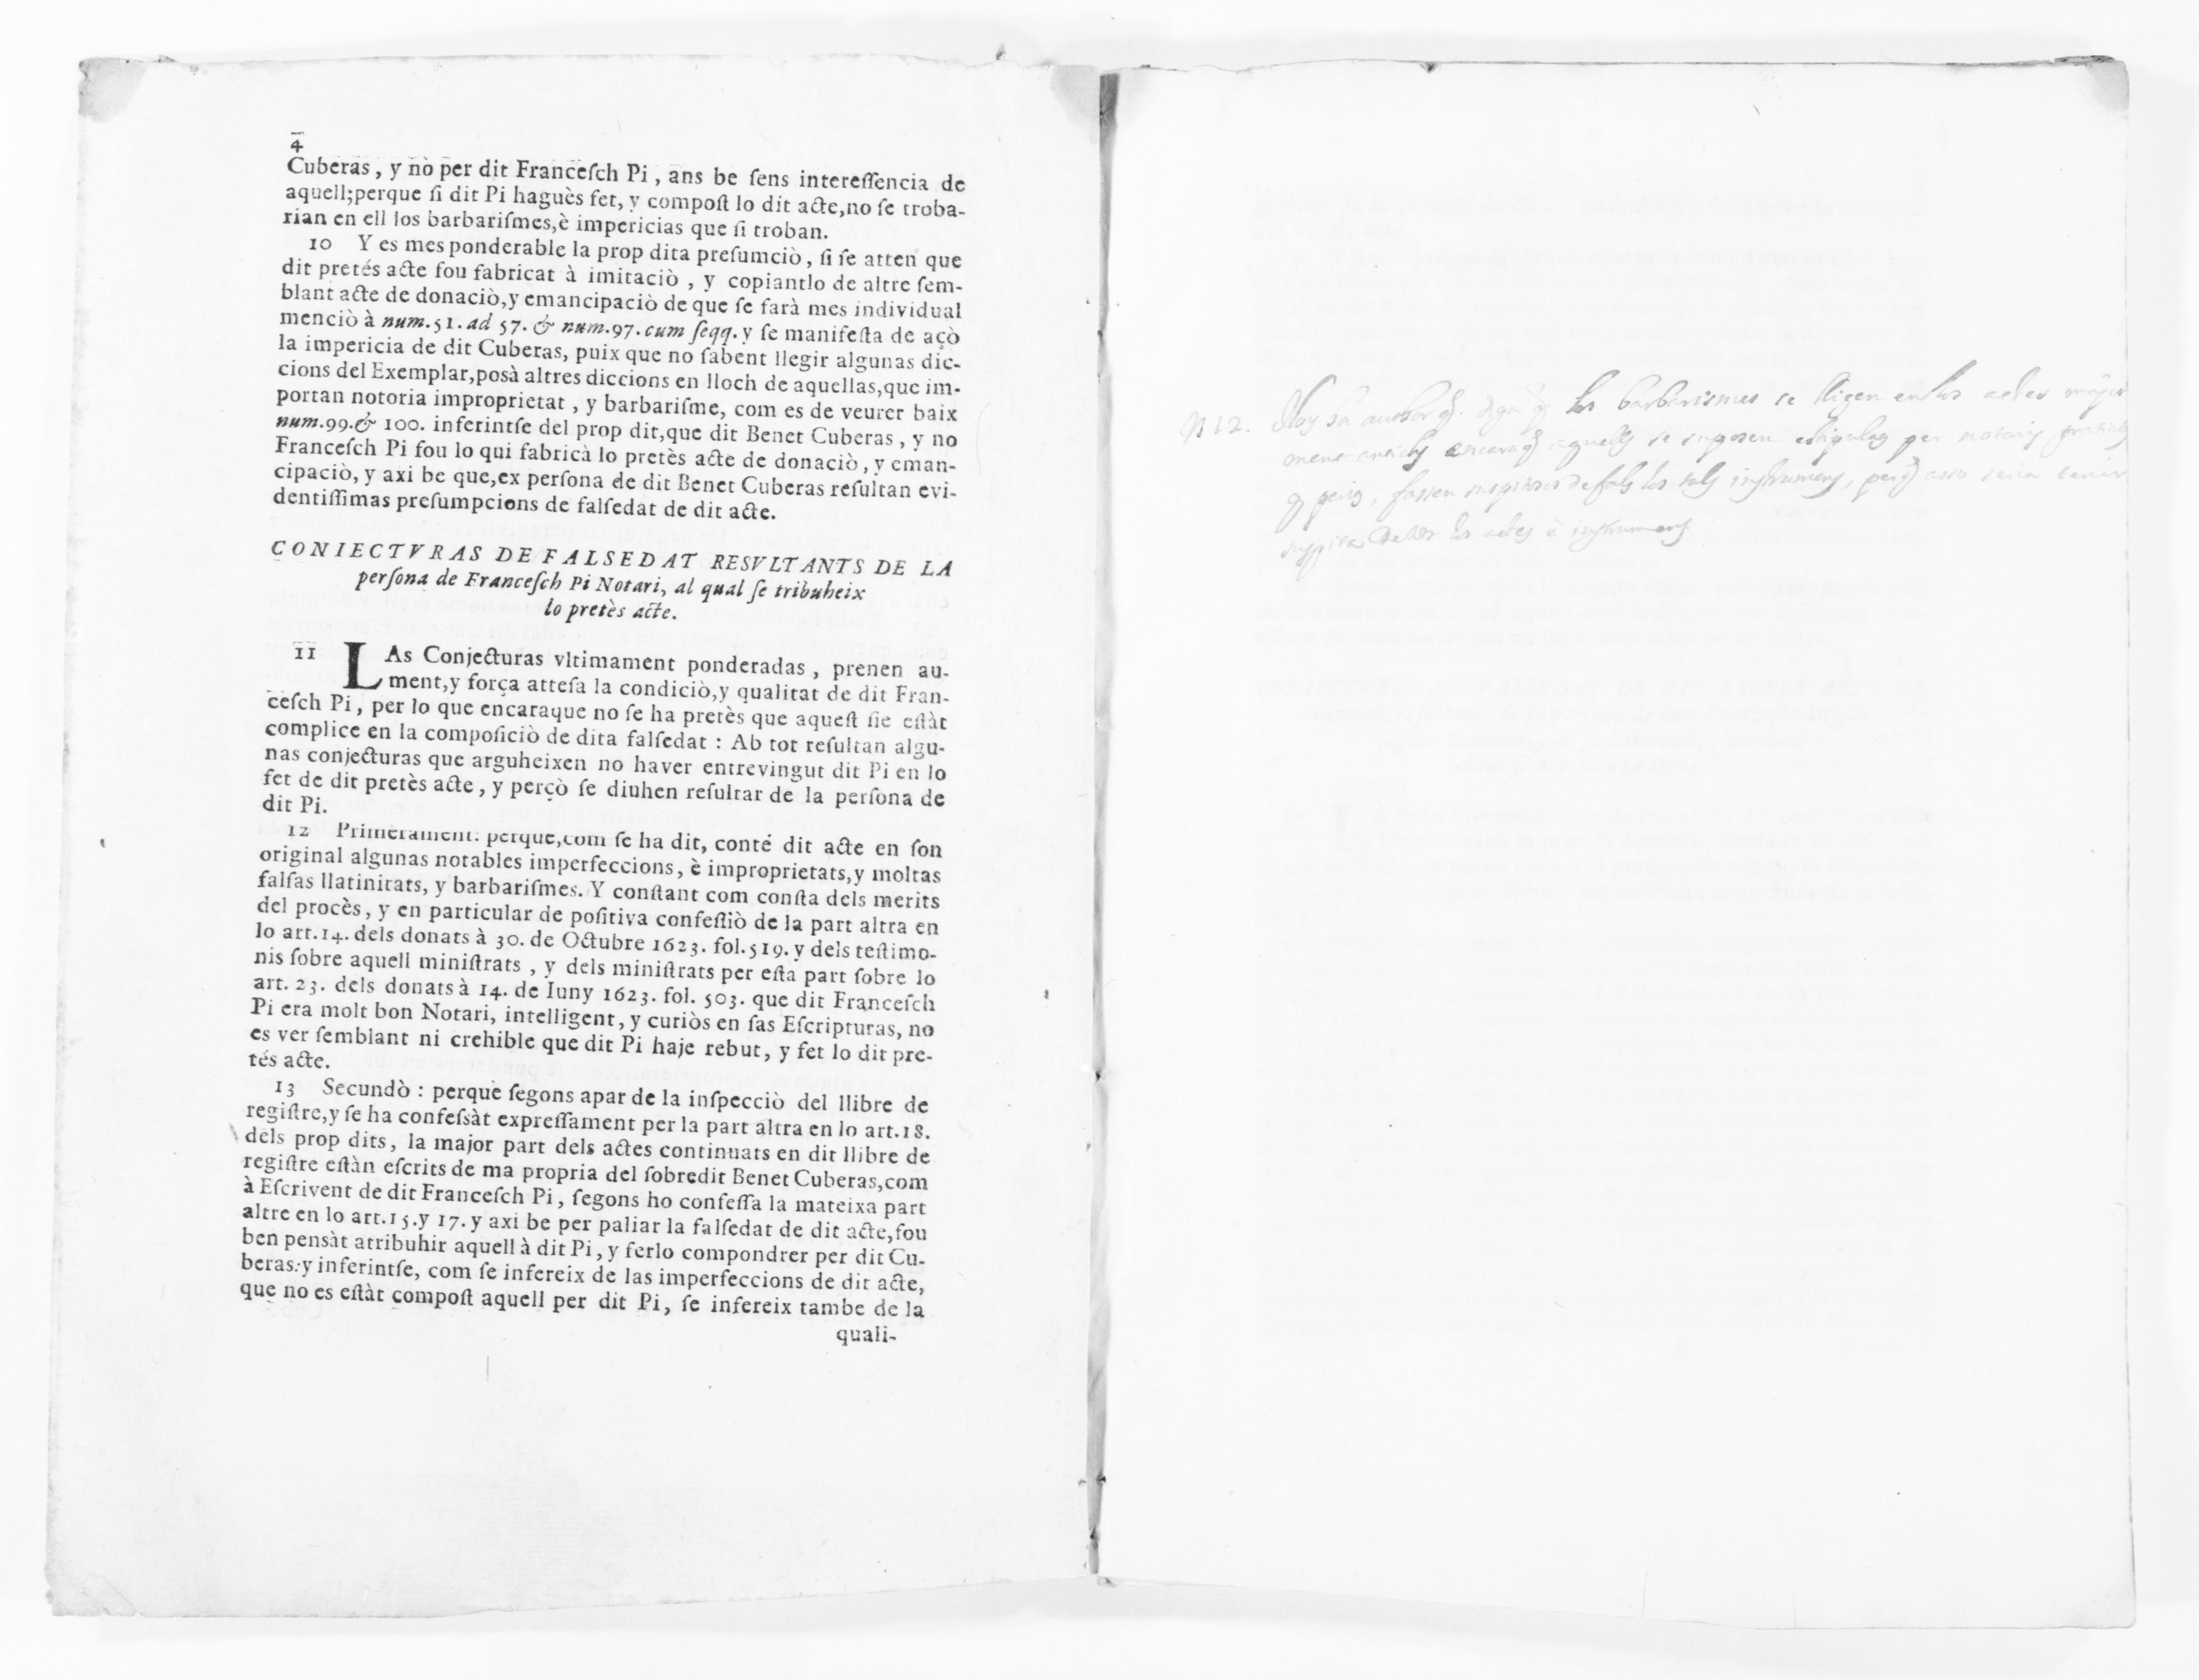 4
Cuberas, y nò per dit Franceſch Pi, ans be ſens intereſſencia de
aquell;perque ſi dit Pi haguès fet, y compoſt lo dit acte,no ſe troba-
rian en ell los barbariſmes,è impericias que ſi troban.
10 Y es mes ponderable la prop dita preſumciò, ſi ſe atten que
dit pretés acte fou fabricat à imitaciò, y copiantlo de altre ſem-
blant acte de donaciò,y emancipaciò de que ſe farà mes individual
menciò à num.51. ad 57. & num.97. cum ſeqq. y ſe manifeſta de açò
la impericia de dit Cuberas, puix que no ſabent llegir algunas dic-
cions del Exemplar,posà altres diccions en lloch de aquellas,que im-
portan notoria improprietat, y barbariſme, com es de veurer baix
num.99.& 100. inferintſe del prop dit,que dit Benet Cuberas, y no
Franceſch Pi fou lo qui fabricà lo pretès acte de donaciò, y eman-
cipaciò, y axi be que,ex perſona de dit Benet Cuberas reſultan evi-
dentiſſimas preſumpcions de falſedat de dit acte.
CONIECTVRAS DE FALSEDAT RESVLTANTS DE LA
perſona de Franceſch Pi Notari, al qual ſe tribuheix
lo pretès acte.
11 LAs Conjecturas vltimament ponderadas, prenen au-
ment,y força atteſa la condiciò,y qualitat de dit Fran-
ceſch Pi, per lo que encaraque no ſe ha pretès que aqueſt ſie eſtàt
complice en la compoſiciò de dita falſedat : Ab tot reſultan algu-
nas conjecturas que arguheixen no haver entrevingut dit Pi en lo
fet de dit pretès acte, y perçò ſe diuhen reſultar de la perſona de
dit Pi.
12 Primerament: perque,com ſe ha dit, conté dit acte en ſon
original algunas notables imperfeccions, è improprietats,y moltas
falſas llatinitats, y barbariſmes. Y conſtant com conſta dels merits
del procès, y en particular de poſitiva confeſſiò de la part altra en
lo art.14. dels donats à 30. de Octubre 1623. fol.519. y dels teſtimo-
nis ſobre aquell miniſtrats, y dels miniſtrats per eſta part ſobre lo
art. 23. dels donats à 14. de Iuny 1623. fol. 503. que dit Franceſch
Pi era molt bon Notari, intelligent, y curiòs en ſas Eſcripturas, no
es ver ſemblant ni crehible que dit Pi haje rebut, y fet lo dit pre-
tés acte.
13 Secundò : perquè ſegons apar de la inſpecciò del llibre de
regiſtre,y ſe ha confeſsàt expreſſament per la part altra en lo art.18.
dels prop dits, la major part dels actes continuats en dit llibre de
regiſtre eſtàn eſcrits de ma propria del ſobredit Benet Cuberas,com
à Eſcrivent de dit Franceſch Pi, ſegons ho confeſſa la mateixa part
altre en lo art.15.y 17. y axi be per paliar la falſedat de dit acte,fou
ben pensàt atribuhir aquell à dit Pi, y ferlo compondrer per dit Cu-
beras:y inferintſe, com ſe infereix de las imperfeccions de dit acte,
que no es eſtàt compoſt aquell per dit Pi, ſe infereix tambe de la
quali-
N 12. los barbarismes se lligen en los actes
se suposen per notaris
los tals instruments, seria
los actes è instruments